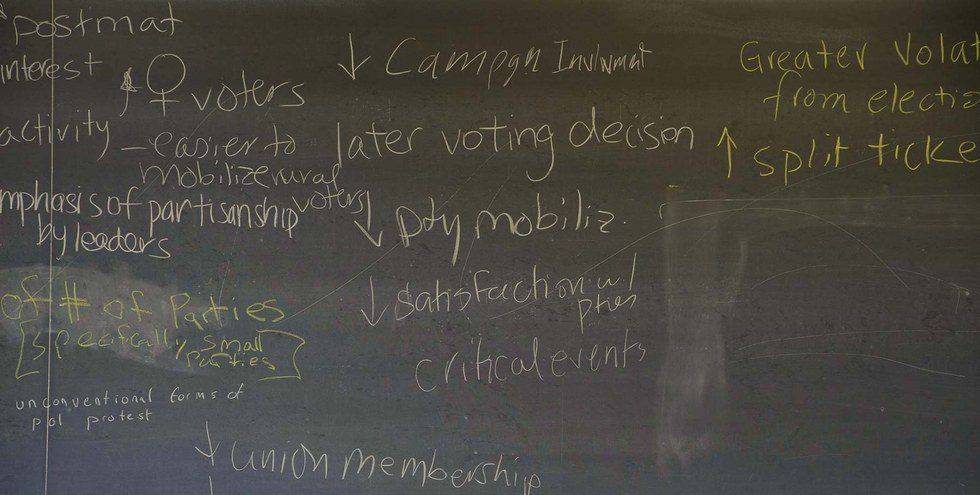 postmat
interest
↑ ♀ voters
activity
– easier to
mobilize rural
voters
mphasis of partisanship
by leaders
of # of Parties
[specifically small
parties]
unconventional forms of
pol protest
↓ Campgn Involvmnt
later voting decision
↓ pty mobiliz.
↓ satisfaction w/
pties
critical events
↓ union membership
↓
Greater Volat
from electio
↑ split ticke